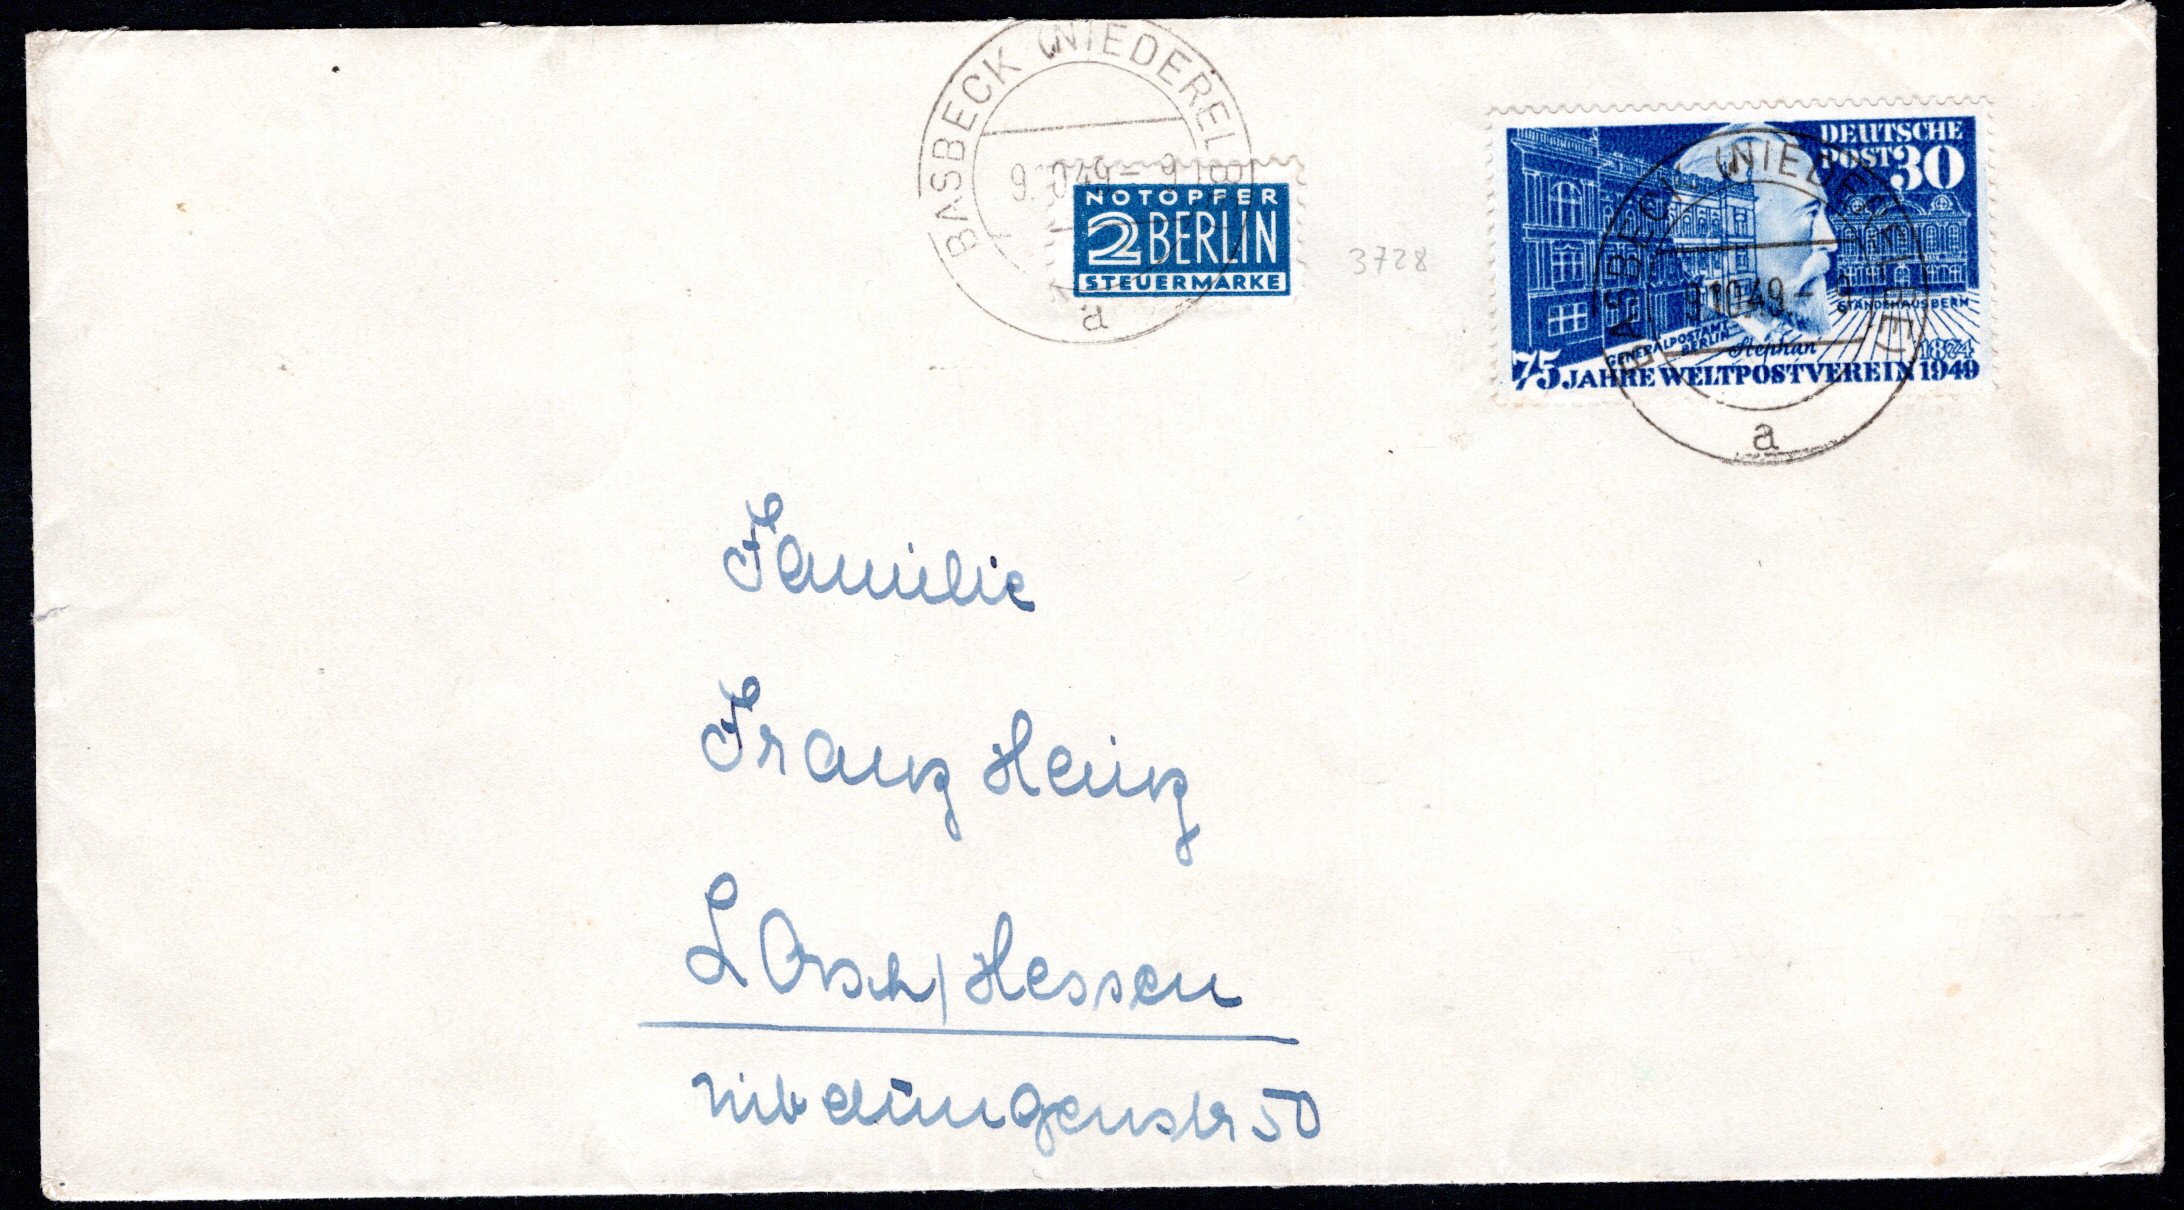 BASBECK (NIEDERELBE)
9.10.49 - 9
a
NOTOPFER
2 BERLIN
STEUERMARKE
3728
DEUTSCHE
POST 30
STÄNDEHAUS BERN
GENERALPOSTAMT
BERLIN
Stephan
1874
75 JAHRE WELTPOSTVEREIN 1949
BASBECK (NIEDERELBE)
9.10.49 - 9
a
Familie
Franz Heinz
Lorsch/Hessen
Nibelungenstr 50